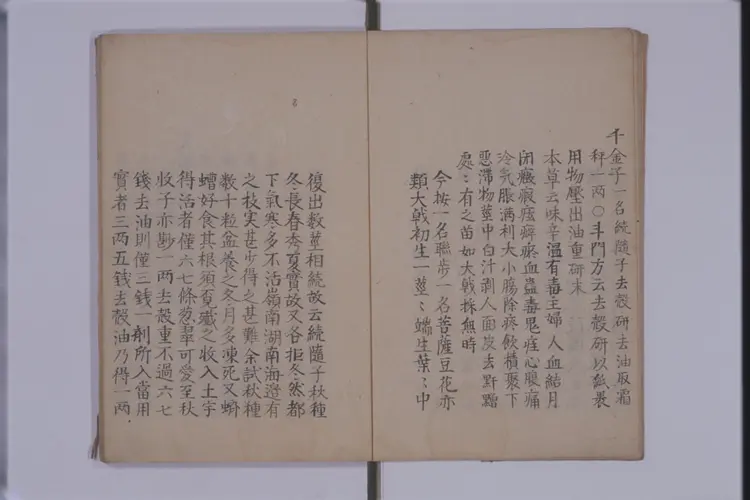 千金子一名続随子去殻研去油取霜
秤一两〇斗門方云去殻研以紙裹
用物壓出油重研末
本草云味辛温有毒主婦人血結月
閉癥瘕痃癖瘀血蠱毒鬼疰心腹痛
冷気脹满利大小腸除痰飲積聚下
悪滞物莖中白汁剥人面皮去䵟䵳
處〻有之苗如大戟採無時
今按一名聯歩一名菩薩豆花亦
類大戟初生一莖〻端生葉〻中
復出数莖相続故云続隨子秋種
冬長春秀夏實故又名拒冬然都
下氣寒多不活嶺南湖南海邉有
之枝実甚少得之甚難余試秋種
数十粒盆養之冬月多凍死又蠐
螬好食其根須覓殱之收入土宇
得活者僅六七條葱翠可愛至秋
收子亦尠一两去殻重不過六七
錢去油則僅三錢一剤所入當用
實者三两五錢去殻油乃得一两